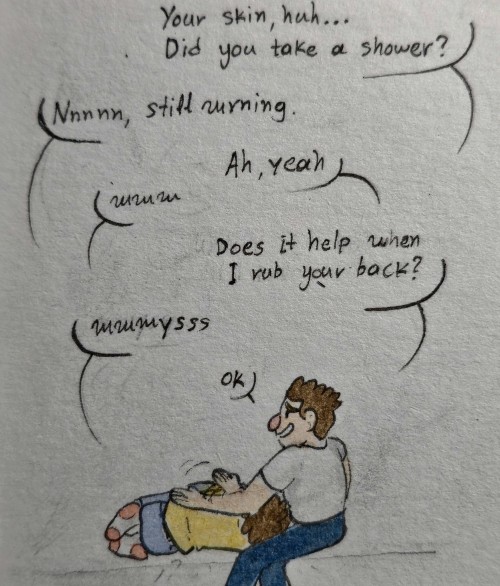 Your skin, huh...
Did you take a shower?
Nnnnn, still rurning.
Ah, yeah
mmmm
Does it help when
I rub your back?
mmmmysss
OK